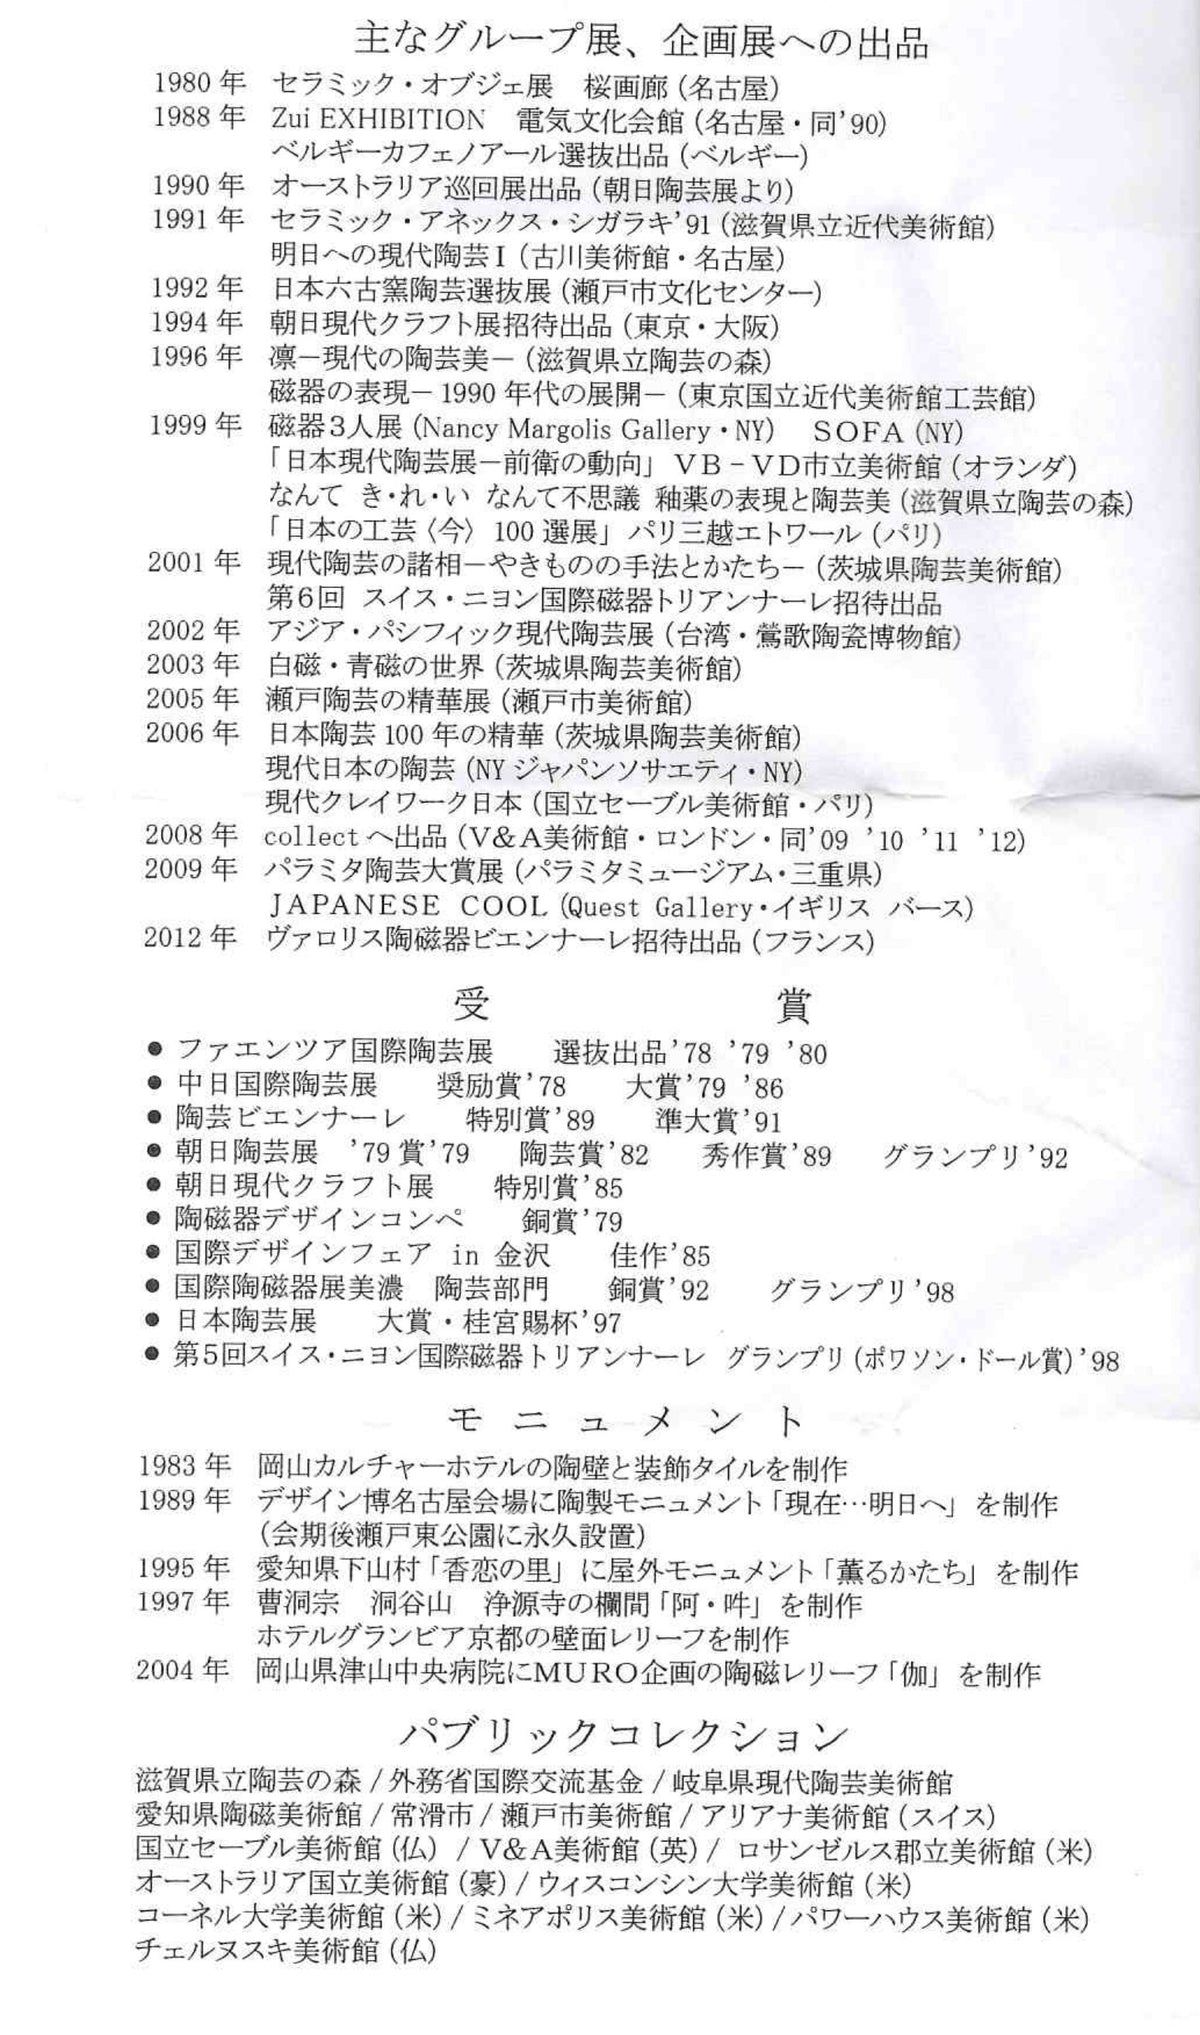 主なグループ展、企画展への出品
1980年 セラミック・オブジェ展 桜画廊(名古屋)
1988年 Zui EXHIBITION 電気文化会館(名古屋・同'90)
ベルギーカフェノアール選抜出品(ベルギー)
1990年 オーストラリア巡回展出品(朝日陶芸展より)
1991年 セラミック・アネックス・シガラキ'91(滋賀県立近代美術館)
明日への現代陶芸Ⅰ(古川美術館・名古屋)
1992年 日本六古窯陶芸選抜展(瀬戸市文化センター)
1994年 朝日現代クラフト展招待出品(東京・大阪)
1996年 凛－現代の陶芸美－(滋賀県立陶芸の森)
磁器の表現－1990年代の展開－(東京国立近代美術館工芸館)
1999年 磁器3人展(Nancy Margolis Gallery・NY) SOFA(NY)
「日本現代陶芸展－前衛の動向」VB-VD市立美術館(オランダ)
なんて き・れ・い なんて不思議 釉薬の表現と陶芸美(滋賀県立陶芸の森)
「日本の工芸〈今〉100選展」パリ三越エトワール(パリ)
2001年 現代陶芸の諸相－やきものの手法とかたち－(茨城県陶芸美術館)
第6回 スイス・ニヨン国際磁器トリアンナーレ招待出品
2002年 アジア・パシフィック現代陶芸展(台湾・鶯歌陶瓷博物館)
2003年 白磁・青磁の世界(茨城県陶芸美術館)
2005年 瀬戸陶芸の精華展(瀬戸市美術館)
2006年 日本陶芸100年の精華(茨城県陶芸美術館)
現代日本の陶芸(NYジャパンソサエティ・NY)
現代クレイワーク日本(国立セーブル美術館・パリ)
2008年 collectへ出品(V&A美術館・ロンドン・同'09 '10 '11 '12)
2009年 パラミタ陶芸大賞展(パラミタミュージアム・三重県)
JAPANESE COOL(Quest Gallery・イギリス バース)
2012年 ヴァロリス陶磁器ビエンナーレ招待出品(フランス)
受 賞
● ファエンツア国際陶芸展 選抜出品'78 '79 '80
● 中日国際陶芸展 奨励賞'78 大賞'79 '86
● 陶芸ビエンナーレ 特別賞'89 準大賞'91
● 朝日陶芸展 '79賞'79 陶芸賞'82 秀作賞'89 グランプリ'92
● 朝日現代クラフト展 特別賞'85
● 陶磁器デザインコンペ 銅賞'79
● 国際デザインフェア in 金沢 佳作'85
● 国際陶磁器展美濃 陶芸部門 銅賞'92 グランプリ'98
● 日本陶芸展 大賞・桂宮賜杯'97
● 第5回スイス・ニヨン国際磁器トリアンナーレ グランプリ(ポワソン・ドール賞)'98
モニュメント
1983年 岡山カルチャーホテルの陶壁と装飾タイルを制作
1989年 デザイン博名古屋会場に陶製モニュメント「現在…明日へ」を制作
(会期後瀬戸東公園に永久設置)
1995年 愛知県下山村「香恋の里」に屋外モニュメント「薫るかたち」を制作
1997年 曹洞宗 洞谷山 浄源寺の欄間「阿・吽」を制作
ホテルグランビア京都の壁面レリーフを制作
2004年 岡山県津山中央病院にMURO企画の陶磁レリーフ「伽」を制作
パブリックコレクション
滋賀県立陶芸の森/外務省国際交流基金/岐阜県現代陶芸美術館
愛知県陶磁美術館/常滑市/瀬戸市美術館/アリアナ美術館(スイス)
国立セーブル美術館(仏) /V&A美術館(英)/ ロサンゼルス郡立美術館(米)
オーストラリア国立美術館(豪)/ウィスコンシン大学美術館(米)
コーネル大学美術館(米)/ミネアポリス美術館(米)/パワーハウス美術館(米)
チェルヌスキ美術館(仏)